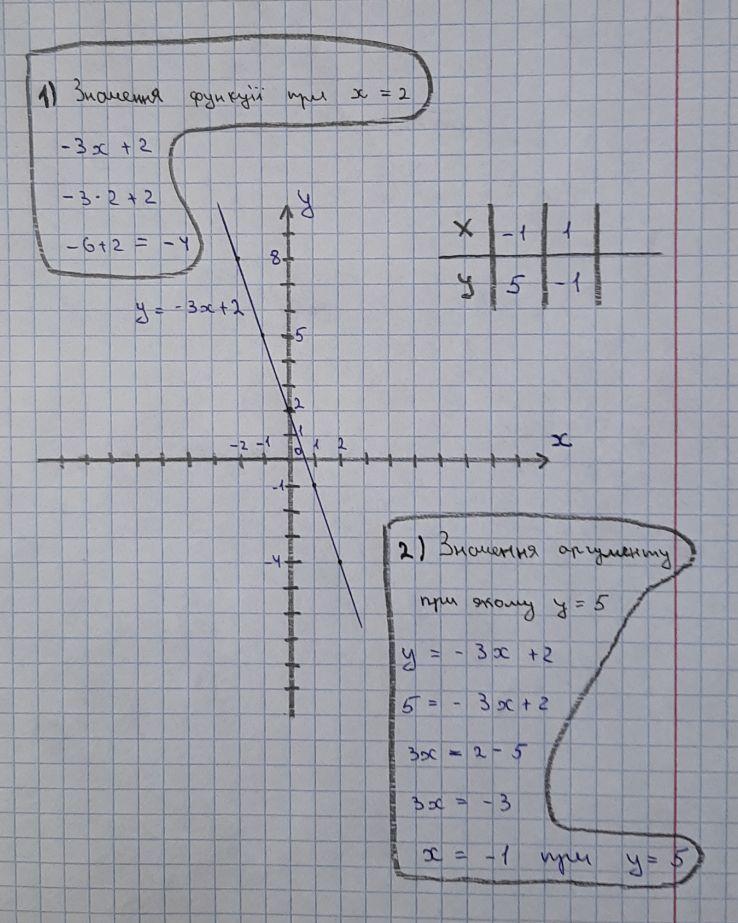 1) Значення функції при x = 2
-3x + 2
-3·2+2
-6+2 = -4
y = -3x+2
y
8
5
2
1
-2 -1 0 1 2
x
-1
-4
x -1 1
y 5 -1
2) Значення аргументу
при якому y = 5
y = -3x +2
5 = -3x+2
3x = 2-5
3x = -3
x = -1 при y = 5